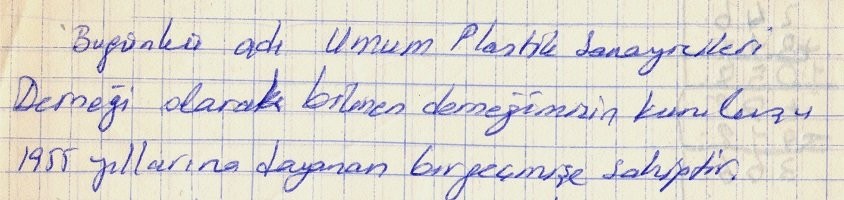 Bugünkü adı Umum Plastik Sanayicileri
Derneği olarak bilinen derneğimizin kuruluşu
1955 yıllarına dayanan bir geçmişe sahiptir.